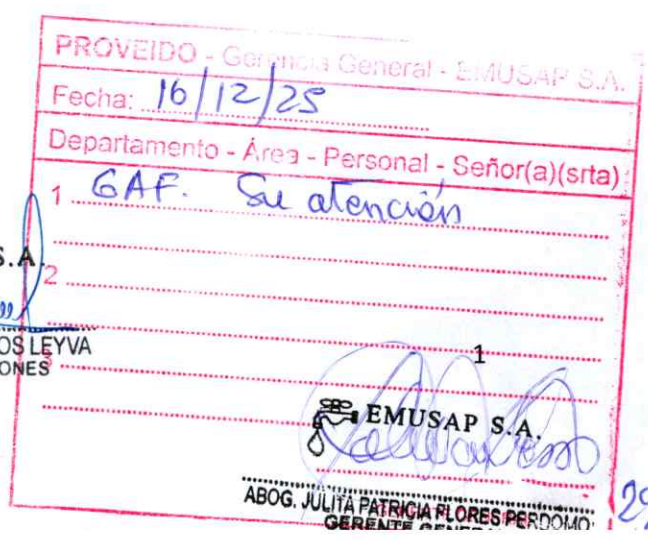 PROVEIDO - Gerencia General - EMUSAP S.A.
Fecha: 16/12/25
Departamento - Área - Personal - Señor(a)(srta)
1 GAF. Su atención
S.A.
2
OS LEYVA
ONES
3
1
EMUSAP S.A.
ABOG. JULITA PATRICIA FLORES PERDOMO
GERENTE GENERAL
29